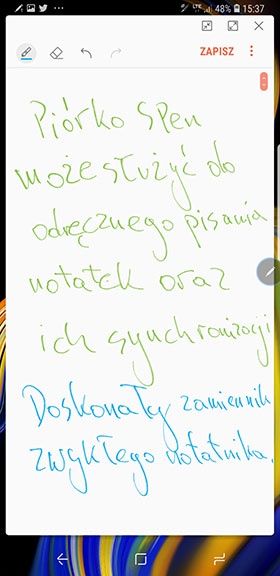 48% 15:37
ZAPISZ
Piórko SPen
może służyć do
odręcznego pisania
notatek oraz
ich synchronizacji
Doskonały zamiennik
zwykłego notatnika.